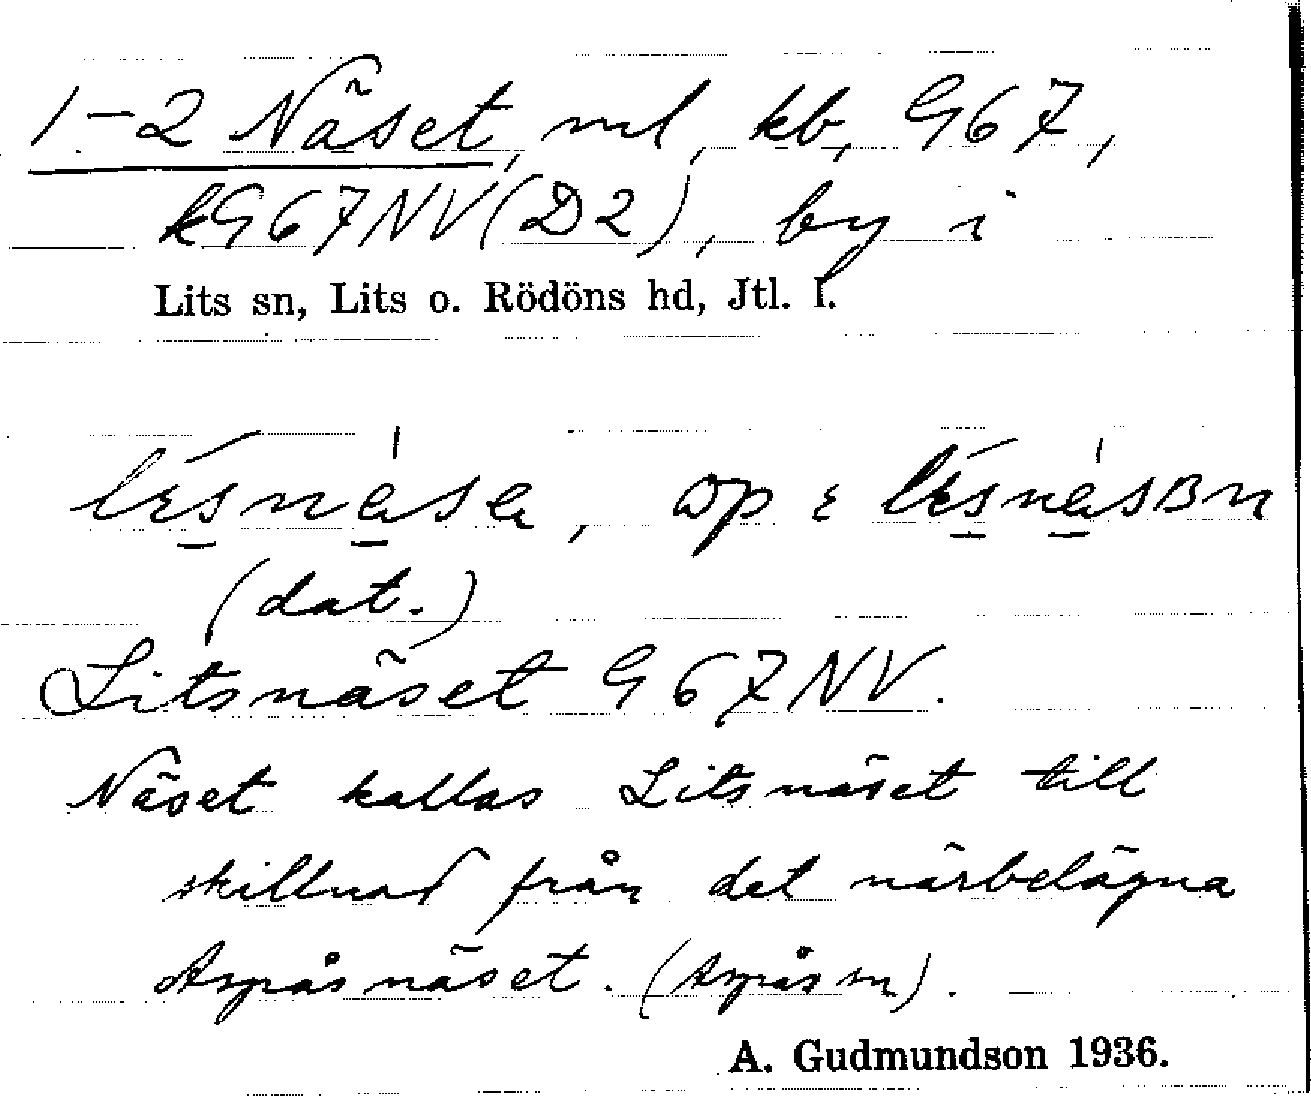 1-2 Näset, ml, kb, G67,
kG67NV(D2), by i
Lits sn, Lits o. Rödöns hd, Jtl. l.
(dat.)
Litsnäset G67NV.
Näset kallas Litsnäset till
skillnad från det närbelägna
Aspåsnäset. (Aspås sn).
A. Gudmundson 1936.